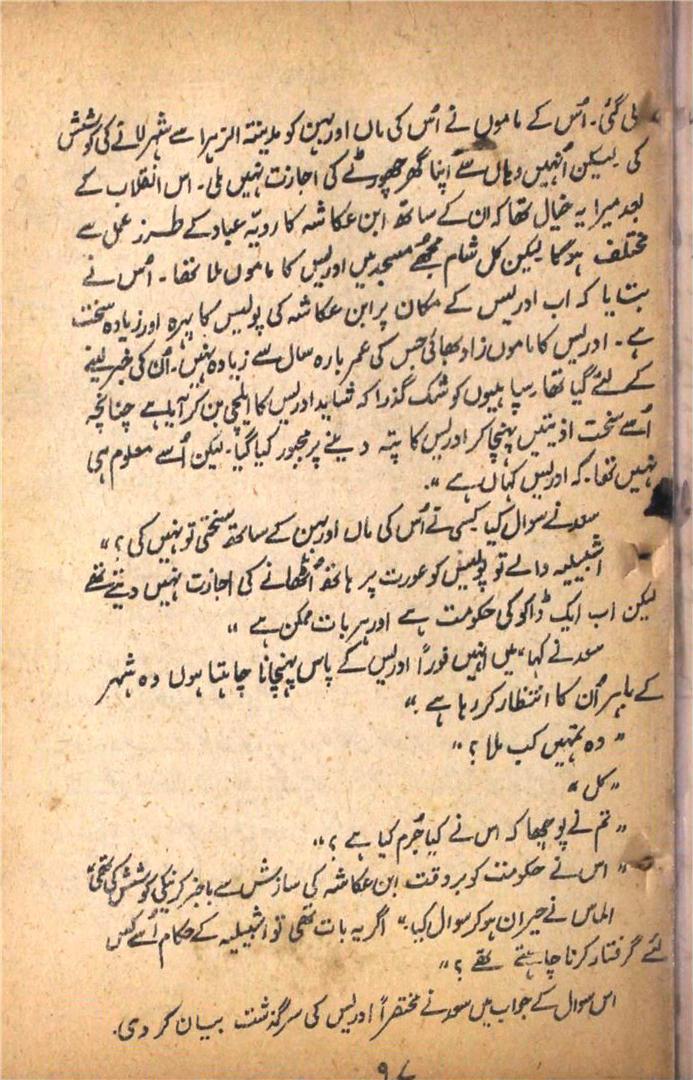 گئی۔ اُس کے ماموں نے اُس کی ماں اور بہن کو مدینۃ الزہرا سے شہر لانے کی کوشش
کی لیکن اُنہیں وہاں سے اپنا گھر چھوڑنے کی اجازت نہیں ملی۔ اس انقلاب کے
بعد میرا یہ خیال تھا کہ ان کے ساتھ ابن عکاشہ کا رویّہ عباد کے طرز عمل سے
مختلف ہوگا لیکن کل شام مجھے مسجد میں ادریس کا ماموں ملا تھا۔ اُس نے
بتایا کہ اب ادریس کے مکان پر ابن عکاشہ کی پولیس کا پہرہ اور زیادہ سخت
ہے۔ ادریس کا ماموں زاد بھائی جس کی عمر بارہ سال سے زیادہ نہیں۔ اُن کی خبر لینے
کے لئے گیا تھا۔ سپاہیوں کو شک گذرا کہ شاید ادریس کا ایلچی بن کر آیا ہے چنانچہ
اُسے سخت اذیتیں پہنچا کر ادریس کا پتہ دینے پر مجبور کیا گیا۔ لیکن اُسے معلوم ہی
نہیں تھا۔ کہ ادریس کہاں ہے"۔
سعد نے سوال کیا کسی نے اُس کی ماں اور بہن کے ساتھ سختی تو نہیں کی؟"
اشبیلیہ والے تو پولیس کو عورت پر ہاتھ اُٹھانے کی اجازت نہیں دیتے تھے
لیکن اب ایک ڈاکو کی حکومت ہے اور ہر بات ممکن ہے"
سعد نے کہا، "میں انہیں فوراً ادریس کے پاس پہنچانا چاہتا ہوں وہ شہر
کے باہر اُن کا انتظار کر رہا ہے۔"
"وہ تمہیں کب ملا؟"
"کل"
"تم نے پوچھا کہ اس نے کیا جُرم کیا ہے؟"
"اس نے حکومت کو بروقت ابن عکاشہ کی سازش سے باخبر کرنیکی کوشش کی تھی"
الماس نے حیران ہو کر سوال کیا۔" اگر یہ بات تھی تو اشبیلیہ کے حکام اُسے کس
لئے گرفتار کرنا چاہتے تھے؟"
اس سوال کے جواب میں سعد نے مختصراً ادریس کی سرگذشت بیان کر دی۔
۹۷